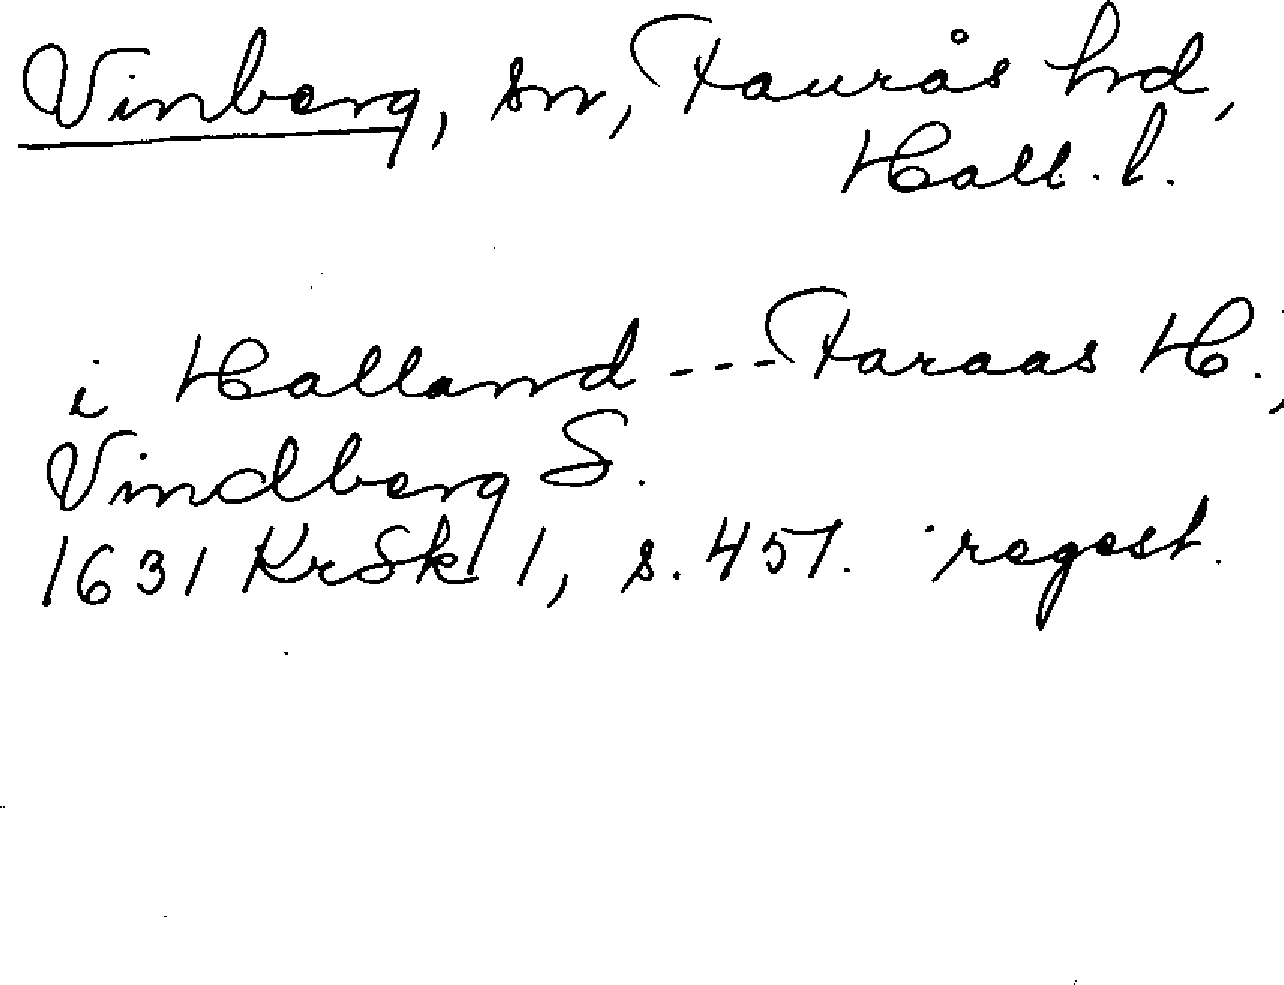 Vinberg, sn, Faurås hrd,
Hall. l.
i Halland --- Faraas H.,
Vindberg S.
1631 KrSkI 1, s. 457. regest.